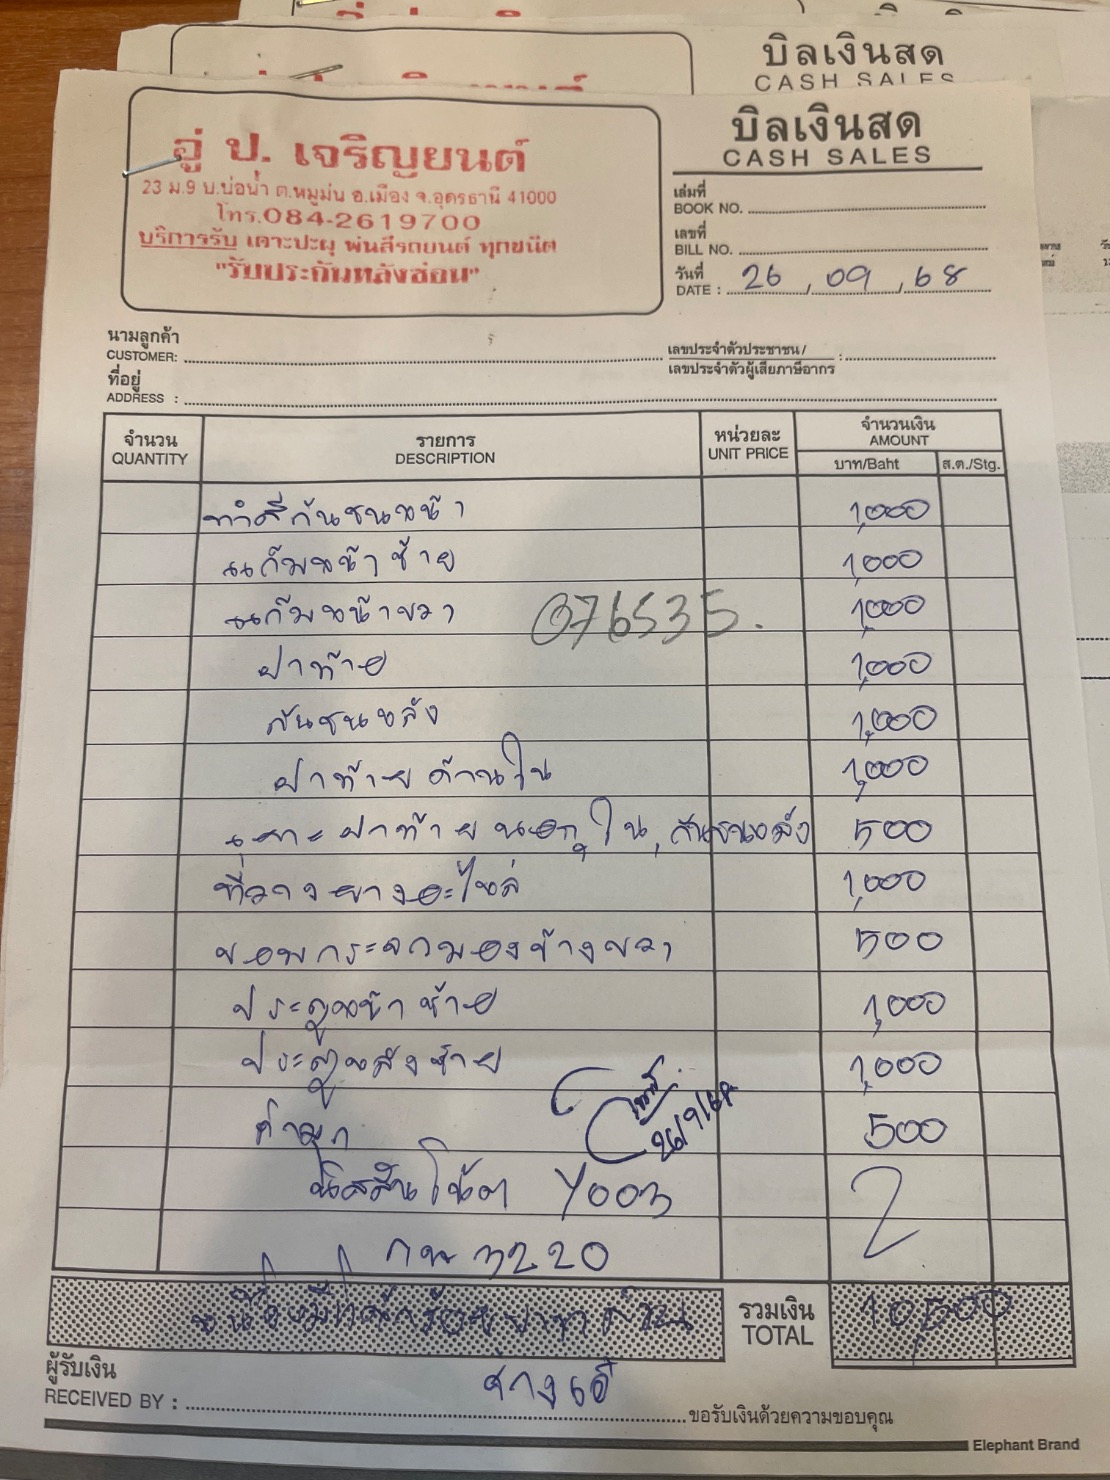 บิลเงินสด
CASH SALES
อู่ ป. เจริญยนต์
23 ม.9 บ.บ่อน้ำ ต.หมูม่น อ.เมือง จ.อุดรธานี 41000
โทร.084-2619700
บริการรับ เคาะปะผุ พ่นสีรถยนต์ ทุกชนิด
"รับประกันหลังซ่อม"
บิลเงินสด
CASH SALES
เล่มที่
BOOK NO.
เลขที่
BILL NO.
วันที่
DATE : 26 / 09 / 68
นามลูกค้า
CUSTOMER:
เลขประจำตัวประชาชน/
เลขประจำตัวผู้เสียภาษีอากร :
ที่อยู่
ADDRESS :
จำนวน รายการ หน่วยละ จำนวนเงิน
QUANTITY DESCRIPTION UNIT PRICE AMOUNT
บาท/Baht ส.ต./Stg.
ทำสีกันชนหน้า 1,000
แก้มหน้าซ้าย 1,000
แก้มหน้าขวา 376535. 1,000
ฝาท้าย 1,000
กันชนหลัง 1,000
ฝาท้ายด้านใน 1,000
เคาะฝาท้ายนอก, ใน, กันชนหลัง 500
ที่วางยางอะไหล่ 1,000
ขอบกระจกมองข้างขวา 500
ประตูหน้าซ้าย 1,000
ประตูหลังซ้าย 1,000
26/9/68
500
นิสสันโน๊ต
กห 3220
รวมเงิน
TOTAL 10,500
ผู้รับเงิน
RECEIVED BY : ช่างเอ๋
ขอรับเงินด้วยความขอบคุณ
Elephant Brand